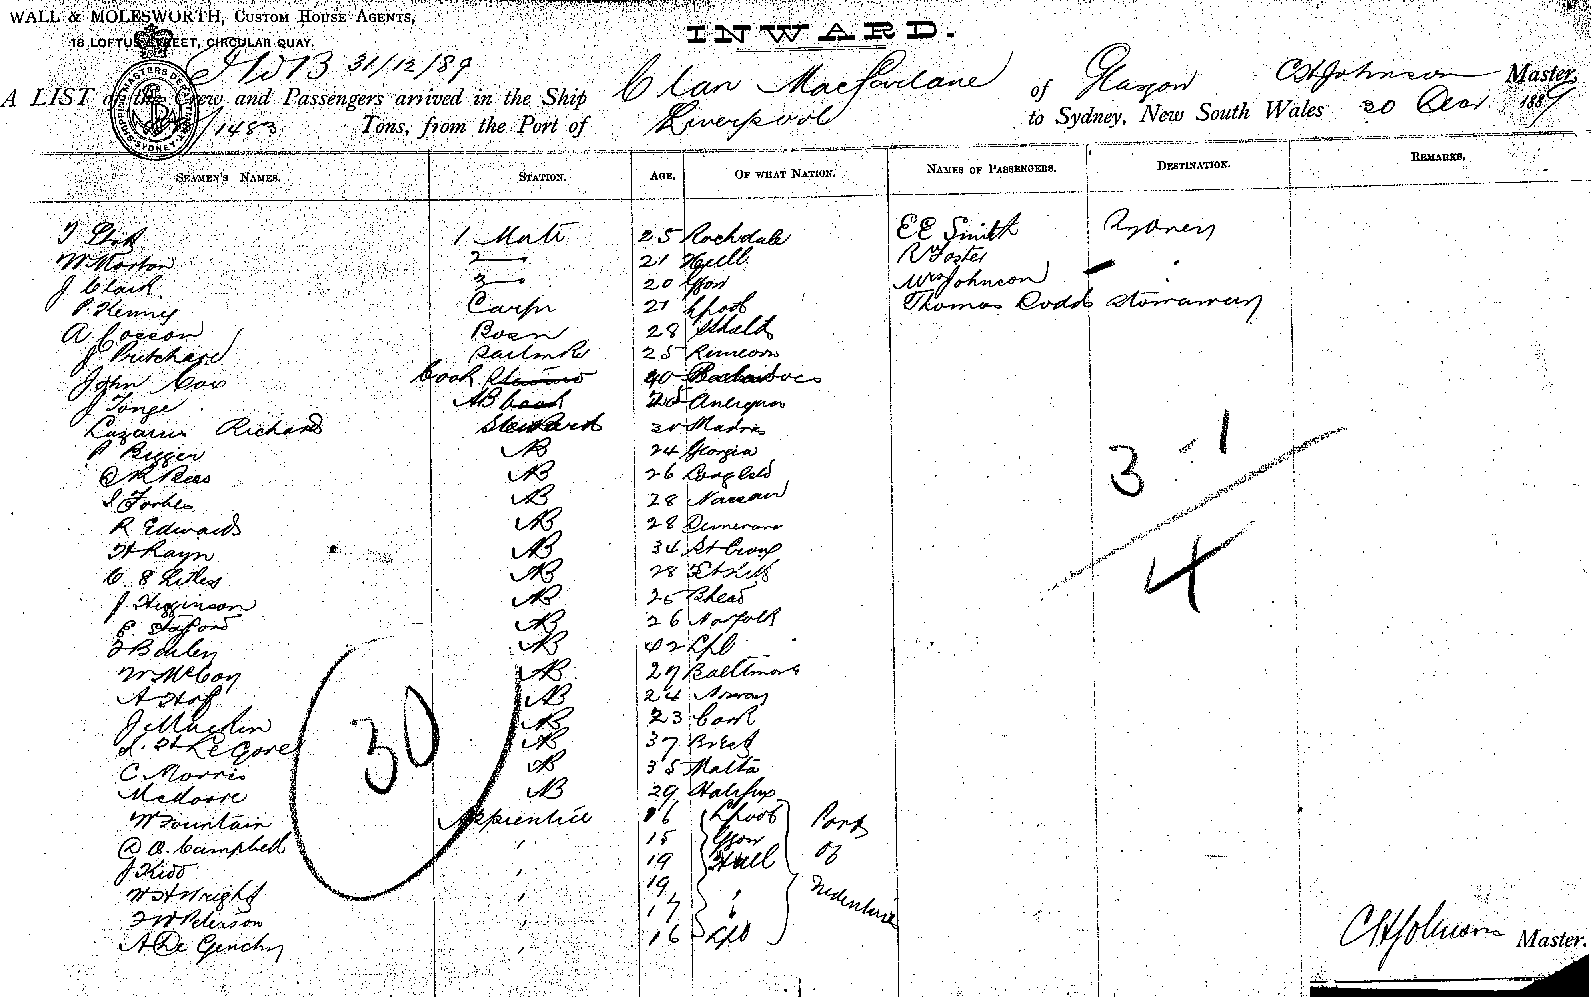 WALL & MOLESWORTH, CUSTOM HOUSE AGENTS,
18 LOFTUS STREET, CIRCULAR QUAY.
INWARD.
31/12/89
A LIST of the Crew and Passengers arrived in the Ship Clan MacFarlane of Glasgow CHJohnson Master,
1483 Tons, from the Port of Liverpool to Sydney, New South Wales 30 Decr 1889
SEAMEN'S NAMES. STATION. AGE. OF WHAT NATION. NAMES OF PASSENGERS. DESTINATION. REMARKS.
1 Mate 25 Rochdale EE Smith Sydney
W Morton 2 21 Hull R Foster
J Clark 3 20 Gow Mrs Johnson
P. Kenny Carpr 21 Lpool Thomas Dodds stowaway
A Cosson Bosn 28
J Pritchard Sailmkr 25 Runcorn
John Cox Cook 40 Barbadoes
J Tonge AB Antigua
Lazarus Richard Steward 30 Madras
P Bigger AB 24 Georgia
AB 26
S Forbes AB 28 Nassau
R Edwards AB 28 Demerara
AB 34 St Croix
AB 28 St Kitts
J Higginson AB 25 Bhead
AB 26 Norfolk
Bailey AB 42 Lpl
W McCoy AB 29 Baltimore
A Hoff AB 24 Norway
J AB 23 Cork
Le Gore AB 37 Brest
C Morris AB 35 Malta
McMoore AB 29 Halifax
W Fountain Apprentice 16 Lpool Port
A. Campbell " 15 Gow of
J Kidd " 19 Hull Indenture
W H Wright " 19 "
Peterson " 17 "
A De Genchy " 16 Lpl
30
3 - 1
4
CHJohnson Master.